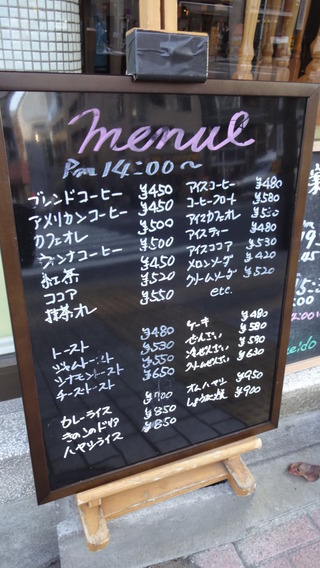 menu
Pm 14:00～
ブレンドコーヒー ¥450
アメリカンコーヒー ¥450
カフェオレ ¥500
ウィンナコーヒー ¥500
紅茶 ¥450
ココア ¥520
抹茶オレ ¥550
アイスコーヒー ¥480
コーヒーフロート ¥580
アイスカフェオレ
アイスティー ¥480
アイスココア ¥530
メロンソーダ ¥420
クリームソーダ ¥520
etc.
トースト ¥480
ジャムトースト ¥530
シナモントースト ¥550
チーズトースト ¥650
カレーライス ¥700
きのこのドリア ¥850
ハヤシライス ¥850
ケーキ ¥480
ぜんざい ¥580
冷ぜんざい ¥580
クリームぜんざい ¥630
オムハヤシ ¥950
しょうが焼 ¥900